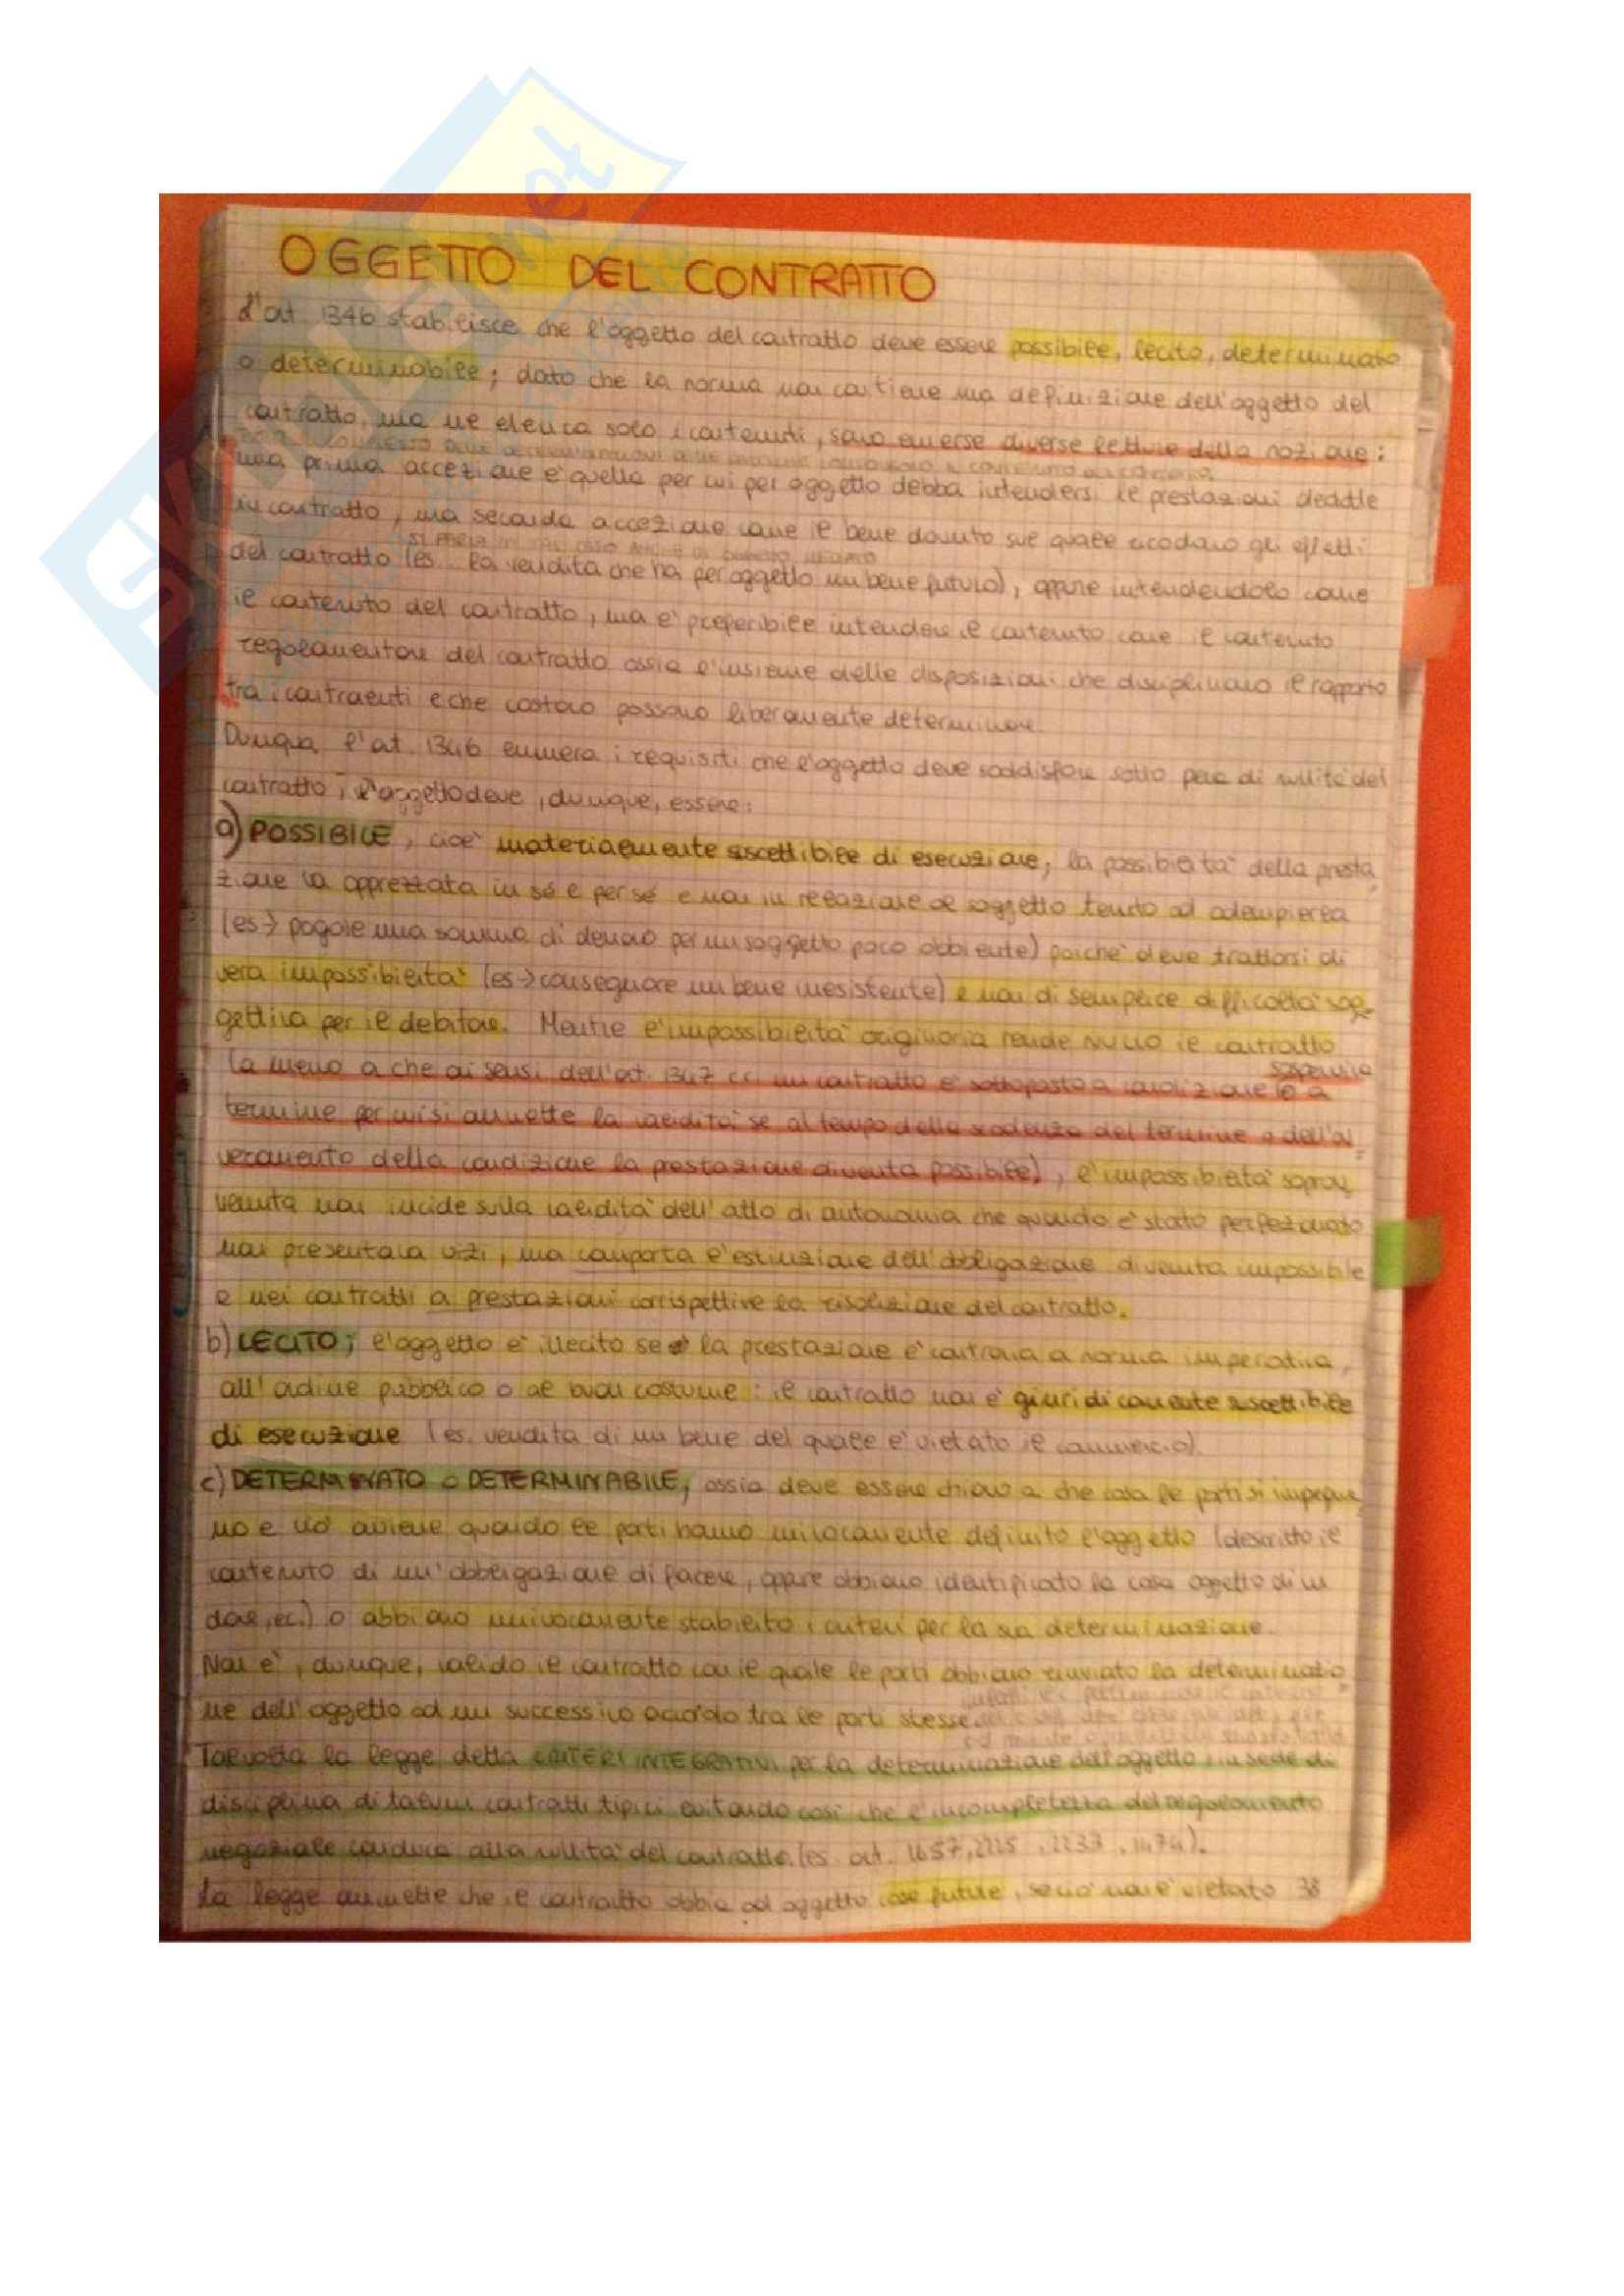 OGGETTO DEL CONTRATTO
L'art. 1346 stabilisce che l'oggetto del contratto deve essere possibile, lecito, determinato
o determinabile; dato che la norma non contiene una definizione dell'oggetto del
contratto, ma ne elenca solo i contenuti, sono emerse diverse letture della nozione:
una prima accezione è quella per cui per oggetto debba intendersi le prestazioni dedotte
in contratto, una seconda accezione come il bene dovuto sul quale ricadano gli effetti
del contratto (es. la vendita che ha per oggetto un bene futuro), oppure intendendolo come
il contenuto del contratto, ma è preferibile intendere il contenuto come il contenuto
regolamentare del contratto ossia l'insieme delle disposizioni che disciplinano il rapporto
tra i contraenti e che costoro possono liberamente determinare.
Dunque l'art. 1346 enumera i requisiti che l'oggetto deve soddisfare sotto pena di nullità del
contratto; l'oggetto deve, dunque, essere:
a) POSSIBILE, cioè materialmente suscettibile di esecuzione; la possibilità della presta
zione va apprezzata in sé e per sé e non in relazione al soggetto tenuto ad adempierla
(es → pagare una somma di denaro per un soggetto poco abbiente) poiché deve trattarsi di
vera impossibilità (es → consegnare un bene inesistente) e non di semplice difficoltà sog-
gettiva per il debitore. Mentre l'impossibilità originaria rende nullo il contratto
sospensiva
(a meno a che ai sensi dell'art. 1347 cc. un contratto è sottoposto a condizione o a
termine per cui si ammette la validità se al tempo della scadenza del termine o dell'av
veramento della condizione la prestazione diventa possibile), l'impossibilità soprav
venuta non incide sulla validità dell'atto di autonomia che quando è stato perfezionato
non presentava vizi, ma comporta l'estinzione dell'obbligazione divenuta impossibile
e nei contratti a prestazioni corrispettive la risoluzione del contratto.
b) LECITO; l'oggetto è illecito se la prestazione è contraria a norma imperativa,
all'ordine pubblico o al buon costume: il contratto non è giuridicamente suscettibile
di esecuzione (es. vendita di un bene del quale è vietato il commercio)
c) DETERMINATO o DETERMINABILE, ossia deve essere chiaro a che cosa le parti si impegna
no e ciò avviene quando le parti hanno univocamente definito l'oggetto (descritto il
contenuto di un'obbligazione di facere, oppure abbiano identificato la cosa oggetto di un
dare, ec.) o abbiano univocamente stabilito i criteri per la sua determinazione.
Non è, dunque, valido il contratto con il quale le parti abbiano rinviato la determinazio
ne dell'oggetto ad un successivo accordo tra le parti stesse
Talvolta la legge detta CRITERI INTEGRATIVI per la determinazione dell'oggetto in sede di
disciplina di taluni contratti tipici evitando così che l'incompletezza del regolamento
negoziale conduca alla nullità del contratto. (es. art. 1657, 2225, 2233, 1474).
La legge ammette che il contratto abbia ad oggetto cose future, se ciò non è vietato 38